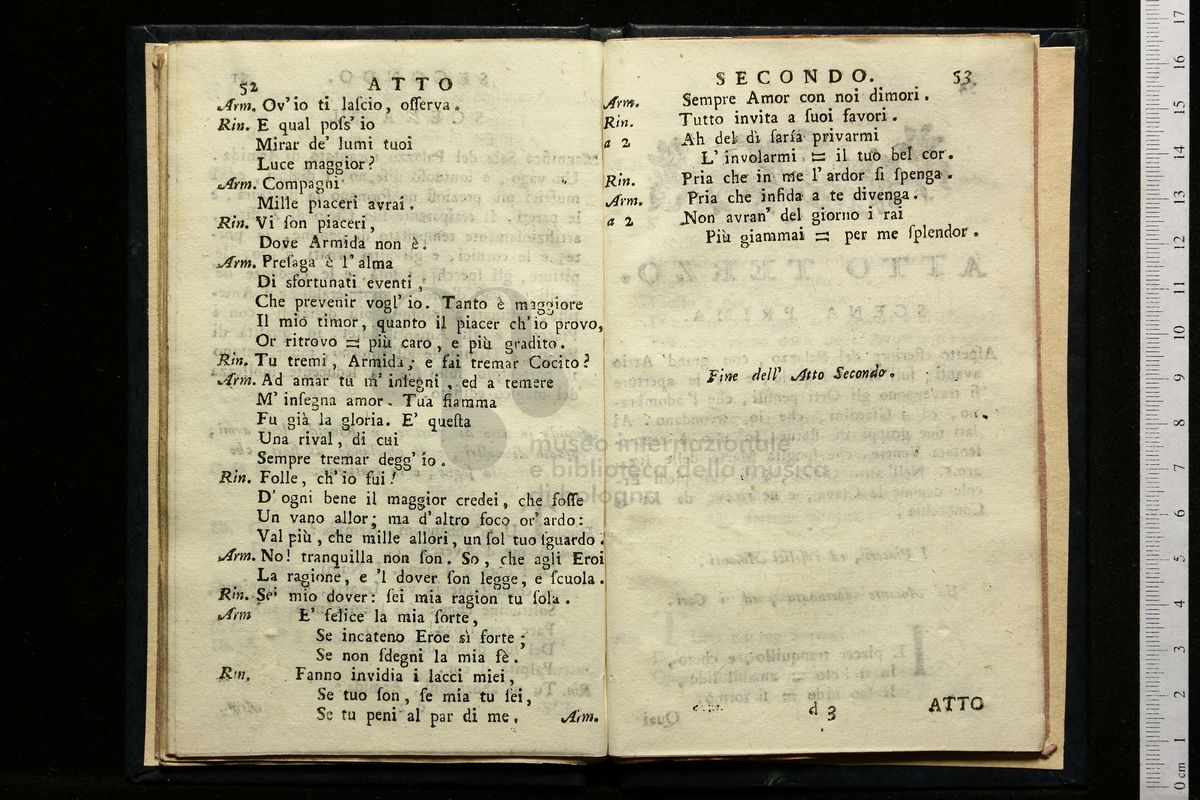 52 ATTO
Arm. Ov' io ti laſcio, oſſerva.
Rin. E qual poſs' io
Mirar de' lumi tuoi
Luce maggior?
Arm. Compagni
Mille piaceri avrai.
Rin. Vi ſon piaceri,
Dove Armida non è.
Arm. Preſaga è l' alma
Di sfortunati eventi,
Che prevenir vogl' io. Tanto è maggiore
Il mio timor, quanto il piacer ch' io provo,
Or ritrovo = più caro, e più gradito.
Rin. Tu tremi, Armida; e fai tremar Cocito?
Arm. Ad amar tu m' inſegni, ed a temere
M' inſegna amor. Tua fiamma
Fu già la gloria. E' queſta
Una rival, di cui
Sempre tremar degg' io.
Rin. Folle, ch' io fui!
D' ogni bene il maggior credei, che foſſe
Un vano allor; ma d' altro foco or' ardo:
Val più, che mille allori, un ſol tuo ſguardo.
Arm. No! tranquilla non ſon. So, che agli Eroi
La ragione, e 'l dover ſon legge, e ſcuola.
Rin. Sei mio dover: ſei mia ragion tu ſola.
Arm E' felice la mia ſorte,
Se incateno Eroe sì forte;
Se non ſdegni la mia fè.
Rin, Fanno invidia i lacci miei,
Se tuo ſon, ſe mia tu ſei,
Se tu peni al par di me.
Arm.
SECONDO. 53
Arm. Sempre Amor con noi dimori.
Rin. Tutto invita a ſuoi favori.
a 2 Ah del dì ſaría privarmi
L' involarmi = il tuo bel cor.
Rin. Pria che in me l' ardor ſi ſpenga.
Arm. Pria che infida a te divenga.
a 2 Non avran' del giorno i rai
Più giammai = per me ſplendor.
Fine dell' Atto Secondo.
d 3 ATTO
museo internazionale
e biblioteca della musica
di bologna
0 cm 1 2 3 4 5 6 7 8 9 10 11 12 13 14 15 16 17